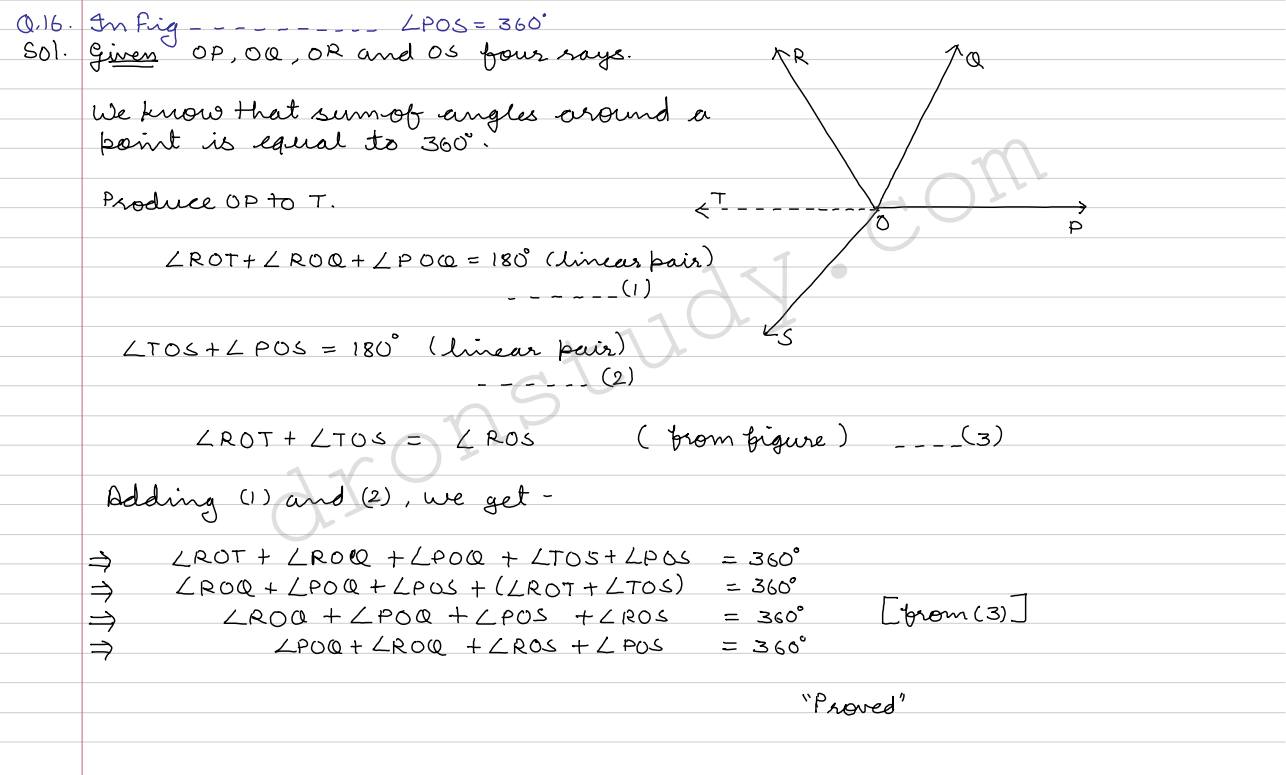 Q.16. In fig ----------- ∠POS = 360°
Sol. Given OP, OQ, OR and OS four rays.
We know that sum of angles around a
point is equal to 360°.
Produce OP to T.
∠ROT + ∠ROQ + ∠POQ = 180° (linear pair)
------(1)
∠TOS + ∠POS = 180° (linear pair)
------(2)
∠ROT + ∠TOS = ∠ROS (from figure) ----(3)
Adding (1) and (2), we get -
⇒ ∠ROT + ∠ROQ + ∠POQ + ∠TOS + ∠POS = 360°
⇒ ∠ROQ + ∠POQ + ∠POS + (∠ROT + ∠TOS) = 360°
⇒ ∠ROQ + ∠POQ + ∠POS + ∠ROS = 360° [from (3)]
⇒ ∠POQ + ∠ROQ + ∠ROS + ∠POS = 360°
"Proved"
R
Q
T
O
P
S
dronstudy.com